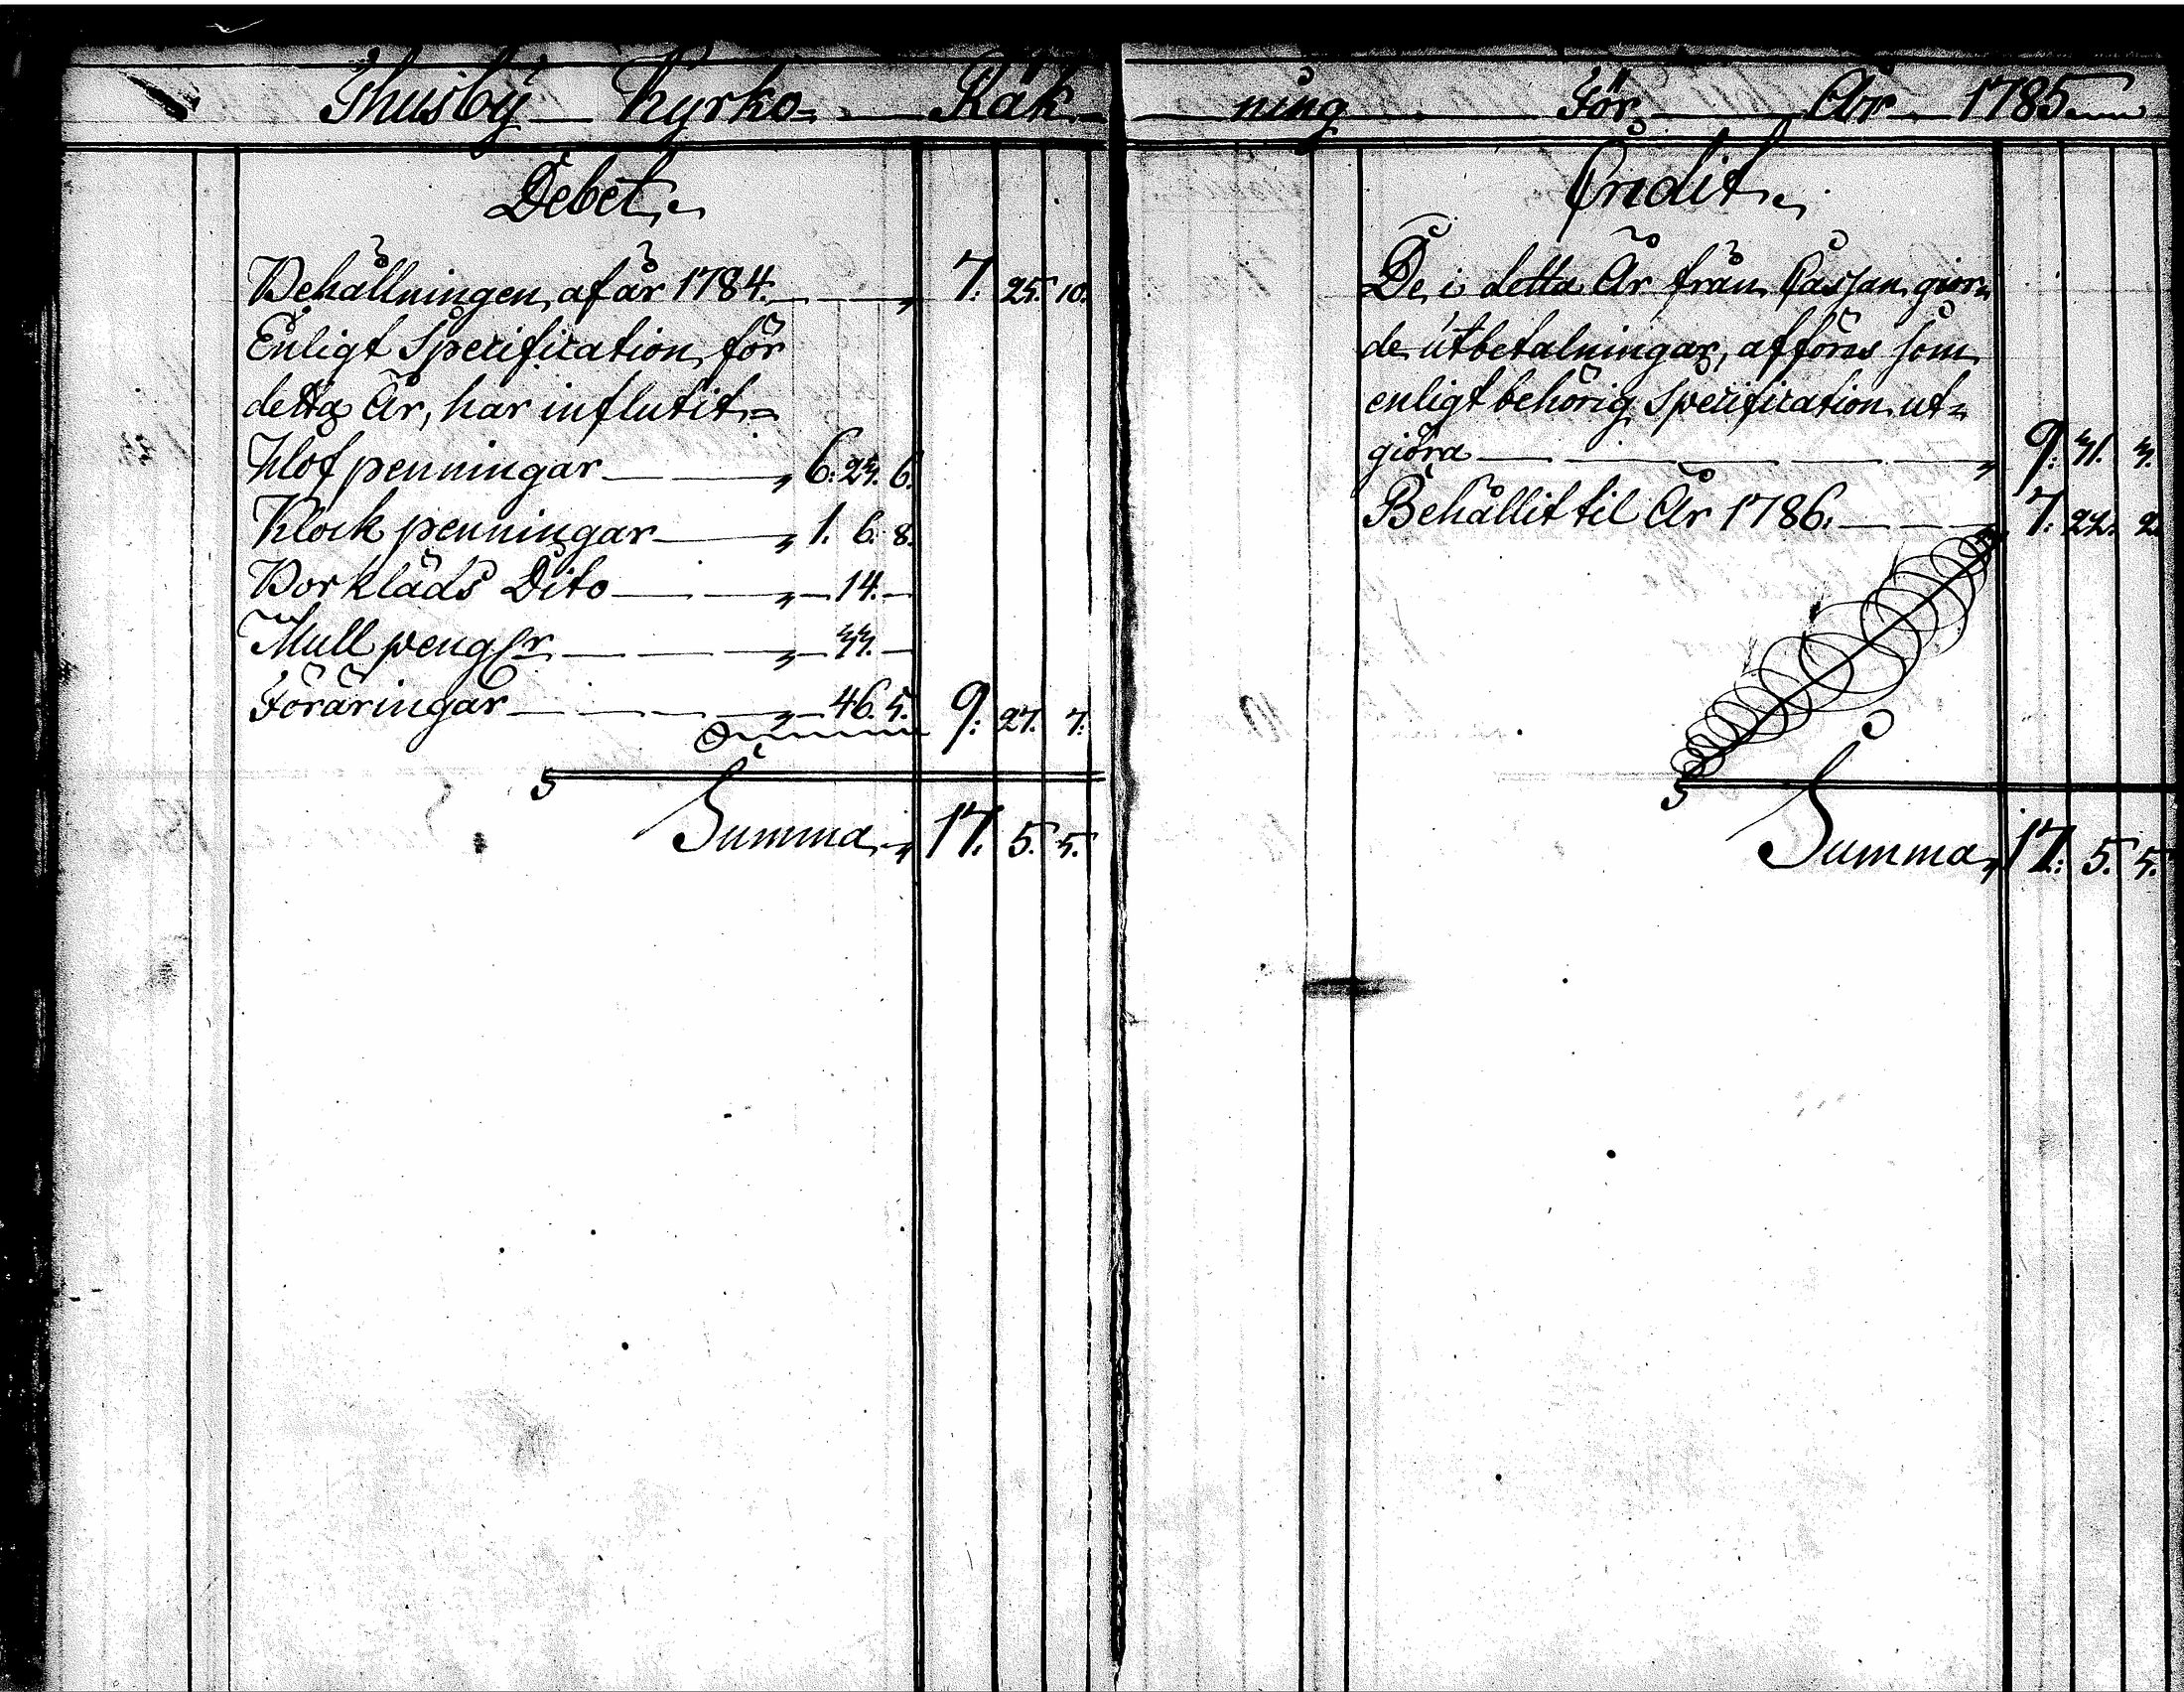 Thusby Kyrko= Räk=
ning För År 1785
Debet.
Behållningen af år 1784. 7. 25. 10.
Enligt Specification för
detta År, har influtit=
Håfpenningar 6. 23. 6.
Klock penningar 1. 6. 8.
Borkläds Dito 14.
Mull peng:r 33.
Föräringar 46. 5. 9. 27. 7.
Summa 17. 5. 5.
Credit.
De i detta År från Cassan gior=
de utbetalningar, afföres som
enligt behörig Specification ut=
giöra 9. 31. 3.
Behållit til År 1786. 7. 22. 2.
Summa 17. 5. 5.